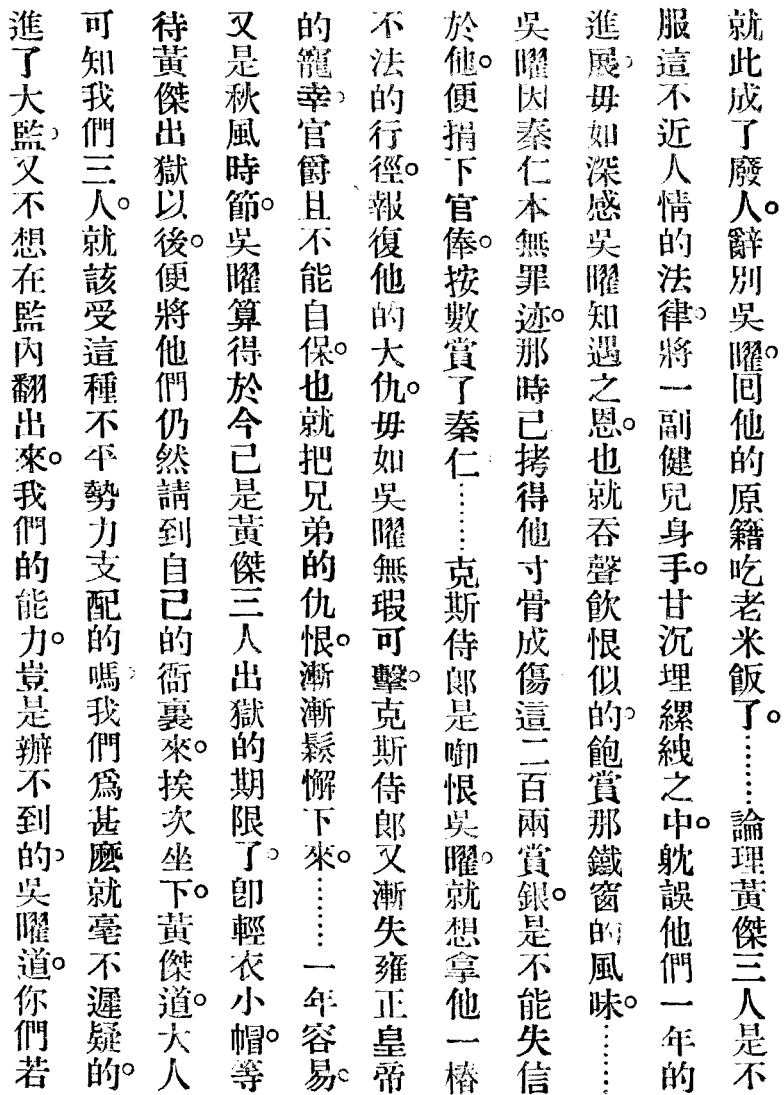 就此成了廢人。辭別吳曜。囘他的原籍吃老米飯了。………論理黃傑三人是不
服這不近人情的法律。將一副健兒身手。甘沉埋縲絏之中。躭誤他們一年的
進展。毋如深感吳曜知遇之恩。也就吞聲飮恨似的。飽賞那鐵窗的風味。……
吳曜因秦仁本無罪迹。那時已拷得他寸骨成傷這二百兩賞銀。是不能失信
於他。便捐下官俸。按數賞了秦仁……克斯侍郎是啣恨吳曜。就想拿他一樁
不法的行徑。報復他的大仇。毋如吳曜無瑕可擊。克斯侍郎又漸失雍正皇帝
的寵幸。官爵且不能自保。也就把兄弟的仇恨。漸漸鬆懈下來。………一年容易。
又是秋風時節。吳曜算得於今已是黃傑三人出獄的期限了。卽輕衣小帽。等
待黃傑出獄以後。便將他們仍然請到自己的衙裏來。挨次坐下。黃傑道。大人
可知我們三人。就該受這種不平勢力支配的嗎。我們爲甚麼就毫不遲疑的。
進了大監。又不想在監內翻出來。我們的能力。豈是辦不到的。吳曜道。你們若